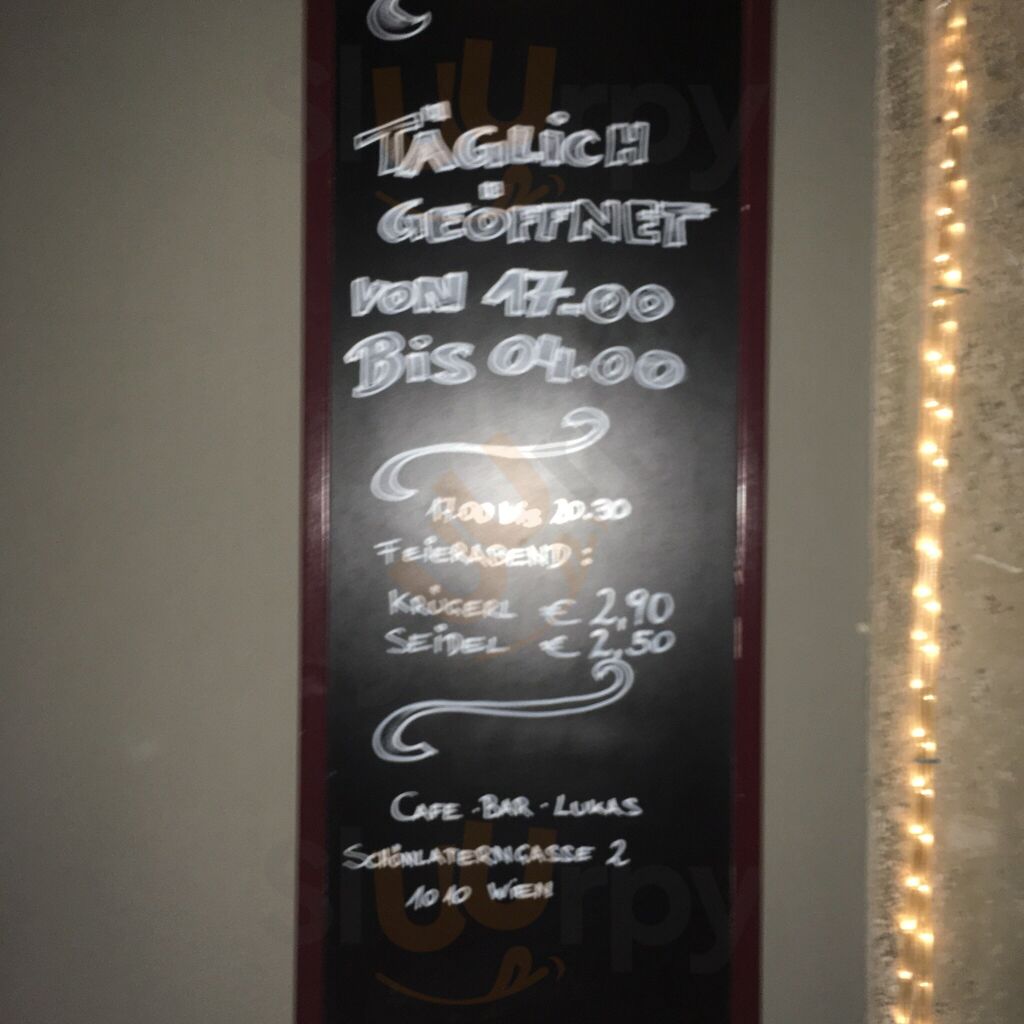 TÄGLICH
GEÖFFNET
VON 17.00
BIS 04.00
17.00 bis 20.30
FEIERABEND:
KRÜGERL € 2,90
SEIDEL € 2,50
CAFE-BAR-LUKAS
SCHÖNLATERNGASSE 2
1010 WIEN
sluurpy
sluurpy